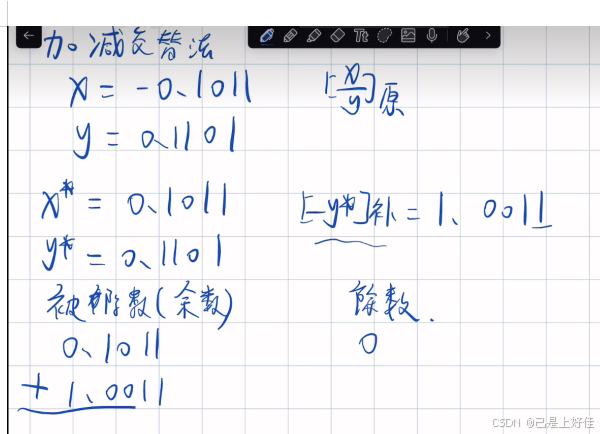 加减交替法
x = -0.1011 [x/y]原
y = 0.1101
x* = 0.1011 [-y*]补 = 1.0011
y* = 0.1101
被除数(余数) 除数.
0.1011 0
+ 1.0011
CSDN @己是上好佳